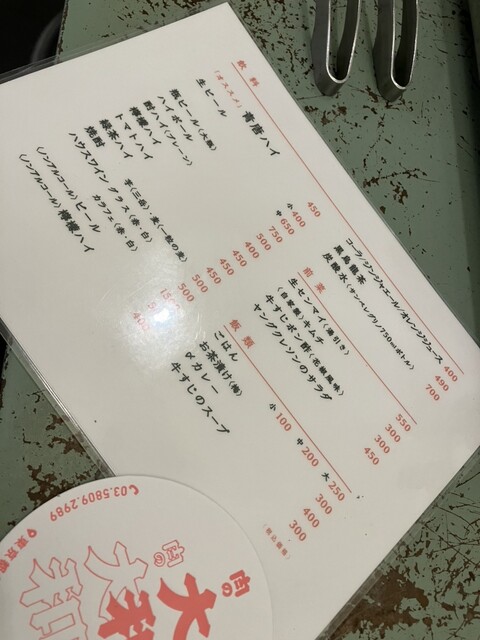 飲料
(オススメ) 青唐ハイ 450
生ビール 小400 中650
瓶ビール(大瓶) 750
ハイボール 500
酎ハイ(プレーン) 400
檸檬ハイ 450
トマトハイ 450
緑茶ハイ 450
焼酎 芋(三岳)・麦(一粒の麦) 500
ハウスワイン グラス(赤・白) 500
カラフェ(赤・白)
(ノンアルコール)ビール
(ノンアルコール)檸檬ハイ 400
コーラ/ジンジャエール/オレンジジュース 400
黒烏龍茶 490
炭酸水(サンペレグリノ750mlボトル) 700
前菜
生センマイ(湯引き) 550
(自家製)キムチ 300
牛すじポン酢(花椒風味) 450
ヤングクレソンのサラダ
飯類
ごはん 小100 中200 大250
お茶漬け(梅) 300
〆カレー 400
牛すじのスープ 300
(税込価格)
03.5809.2989
東京都